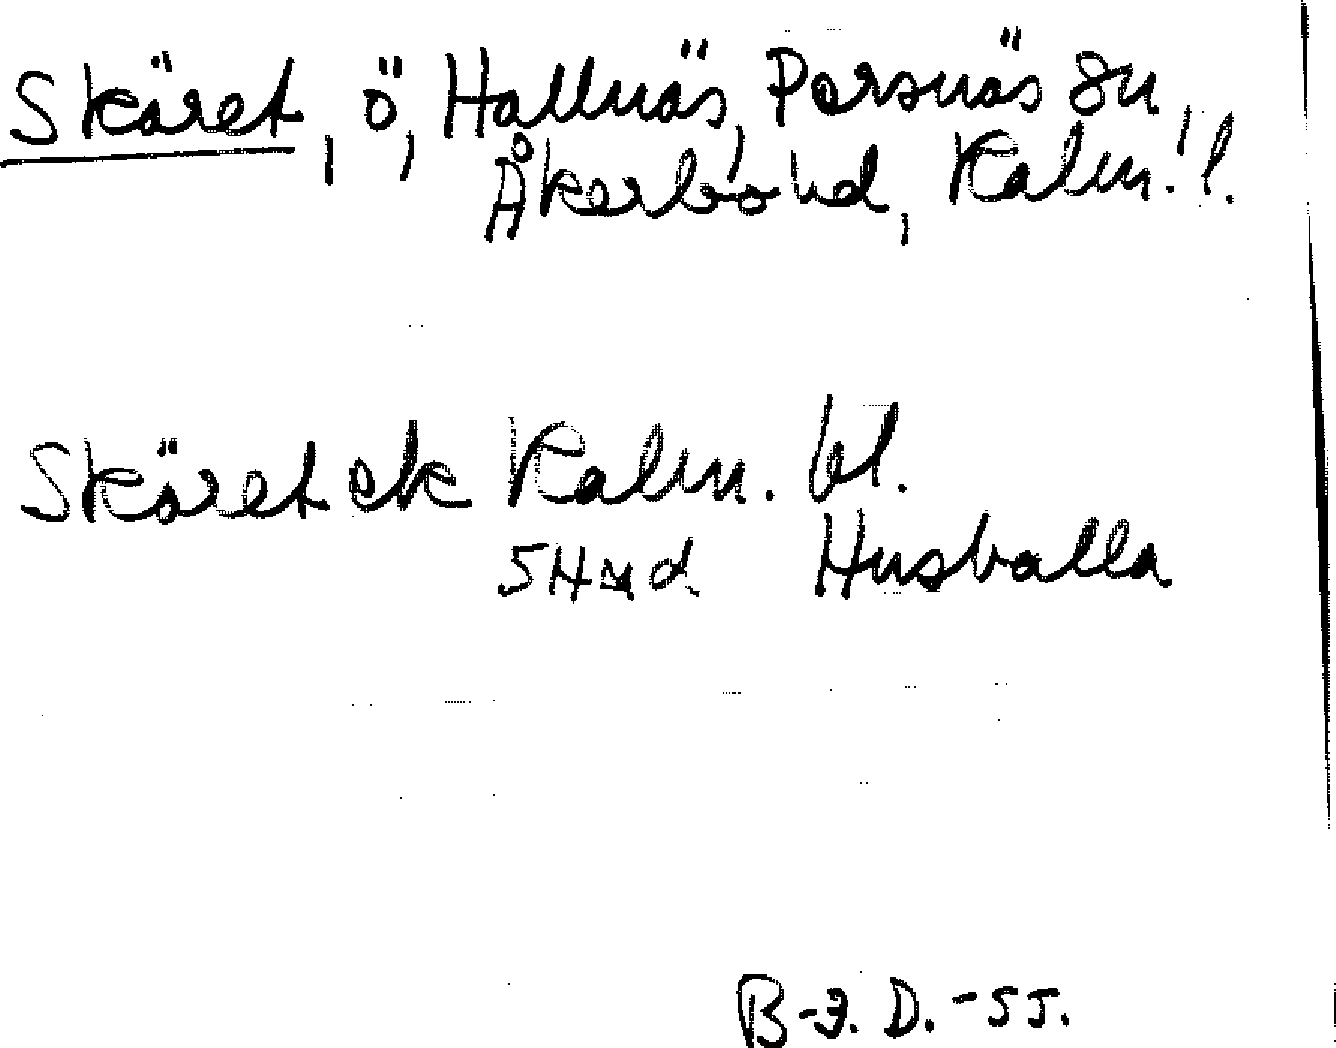 Skäret, ö, Hallnäs, Persnäs sn,
Åkerbo hd, Kalm. l.
Skäret ek Kalm. bl.
5H nd Husvalla
B-J. D. -55.